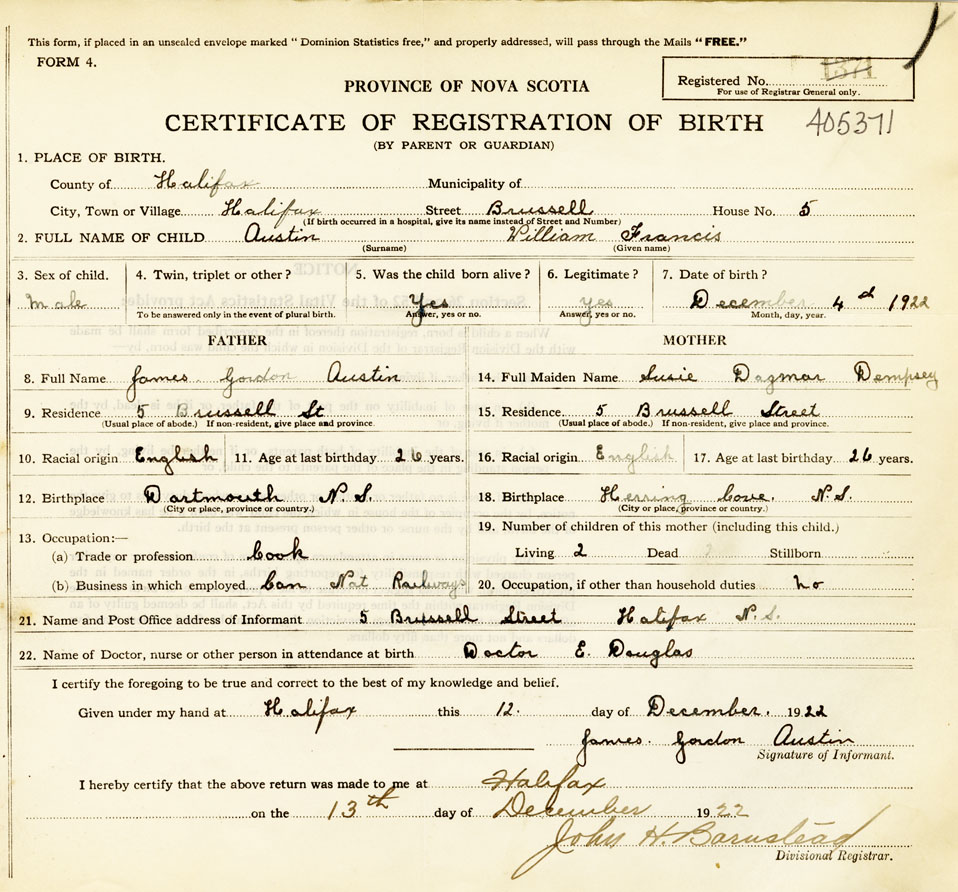 This form, if placed in an unsealed envelope marked " Dominion Statistics free," and properly addressed, will pass through the Mails "FREE."
FORM 4.
Registered No. 1371
For use of Registrar General only.
PROVINCE OF NOVA SCOTIA
CERTIFICATE OF REGISTRATION OF BIRTH 405371
(BY PARENT OR GUARDIAN)
1. PLACE OF BIRTH.
County of Halifax Municipality of
City, Town or Village Halifax Street Brussell House No. 5
(If birth occurred in a hospital, give its name instead of Street and Number)
2. FULL NAME OF CHILD Austin William Francis
(Surname) (Given name)
3. Sex of child. 4. Twin, triplet or other? 5. Was the child born alive? 6. Legitimate? 7. Date of birth?
male Yes yes December 4 d 1922
To be answered only in the event of plural birth. Answer, yes or no. Answer, yes or no. Month, day, year.
FATHER MOTHER
8. Full Name James Gordon Austin 14. Full Maiden Name Susie Dagmar Dempsey
9. Residence 5 Brussell St 15. Residence 5 Brussell Street
(Usual place of abode.) If non-resident, give place and province. (Usual place of abode.) If non-resident, give place and province.
10. Racial origin English 11. Age at last birthday 26 years. 16. Racial origin English 17. Age at last birthday 26 years.
12. Birthplace Dartmouth N.S. 18. Birthplace Herring Cove. N.S.
(City or place, province or country.) (City or place, province or country.)
13. Occupation:— 19. Number of children of this mother (including this child.)
(a) Trade or profession Cook Living 2 Dead Stillborn
(b) Business in which employed Can Nat Railways 20. Occupation, if other than household duties no
21. Name and Post Office address of Informant 5 Brussell Street Halifax N.S.
22. Name of Doctor, nurse or other person in attendance at birth Doctor E. Douglas
I certify the foregoing to be true and correct to the best of my knowledge and belief.
Given under my hand at Halifax this 12. day of December. 1922
James. Gordon Austin
Signature of Informant.
I hereby certify that the above return was made to me at Halifax
on the 13th day of December 1922
John H. Barnstead
Divisional Registrar.